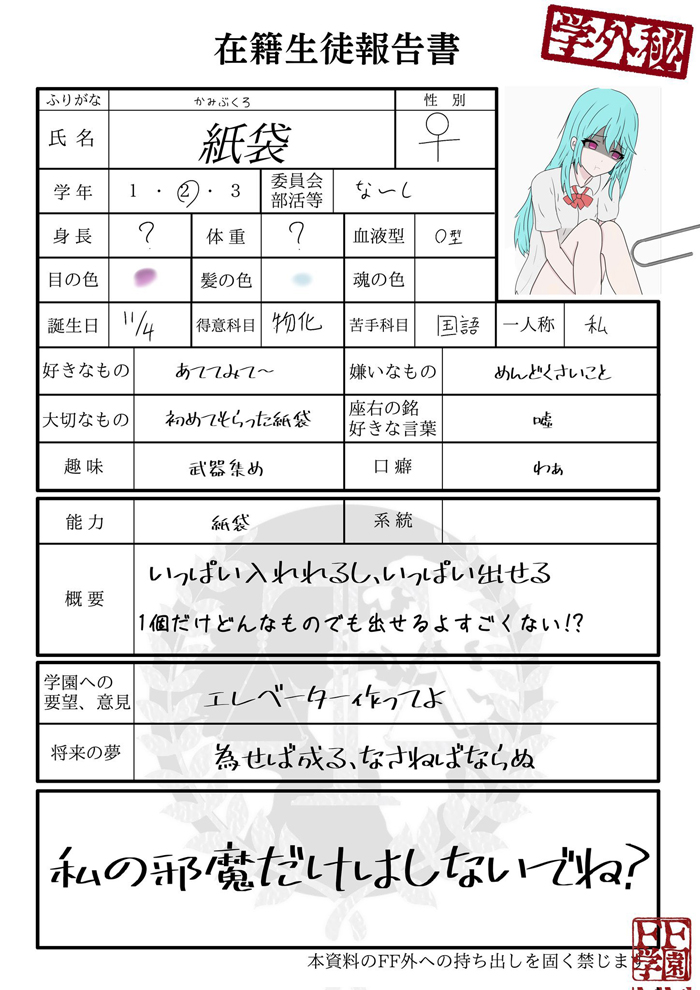 在籍生徒報告書
学外秘
ふりがな かみぶくろ 性別
氏名 紙袋 ♀
学年 1・2・3 委員会 部活等 な～し
身長 ? 体重 ? 血液型 O型
目の色 髪の色 魂の色
誕生日 11/4 得意科目 物化 苦手科目 国語 一人称 私
好きなもの あててみて～ 嫌いなもの めんどくさいこと
大切なもの 初めてもらった紙袋 座右の銘 好きな言葉 嘘
趣味 武器集め 口癖 わぁ
能力 紙袋 系統
概要 いっぱい入れれるし、いっぱい出せる
1個だけどんなものでも出せるよすごくない!?
学園への
要望、意見 エレベーター作ってよ
将来の夢 為せば成る、なさねばならぬ
私の邪魔だけはしないでね?
本資料のFF外への持ち出しを固く禁じます
FF
学園